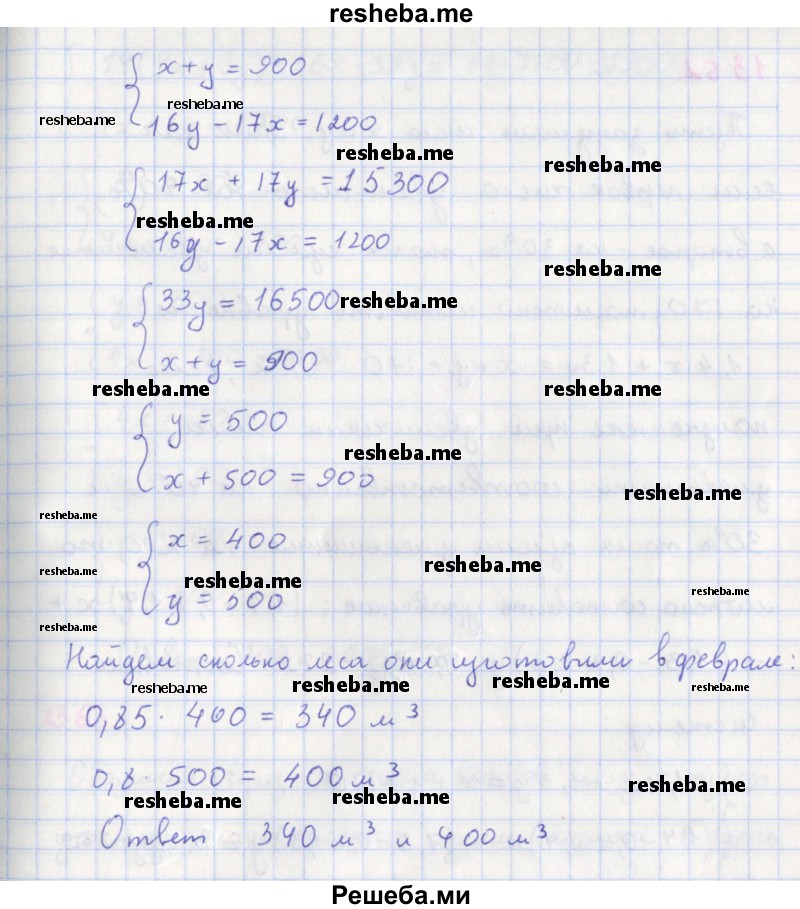 resheba.me
x + y = 900
resheba.me
resheba.me
16y - 17x = 1200
resheba.me
resheba.me
17x + 17y = 15300
resheba.me
16y - 17x = 1200
resheba.me
33y = 16500
resheba.me
x + y = 900
resheba.me
resheba.me
y = 500
resheba.me
x + 500 = 900
resheba.me
resheba.me
x = 400
resheba.me
resheba.me
resheba.me
resheba.me
y = 500
resheba.me
Найдем сколько леса они изготовили в феврале:
resheba.me
resheba.me
resheba.me
resheba.me
0,85 · 400 = 340 м³
0,8 · 500 = 400 м³
resheba.me
resheba.me
resheba.me
Ответ 340 м³ и 400 м³
Решеба.ми